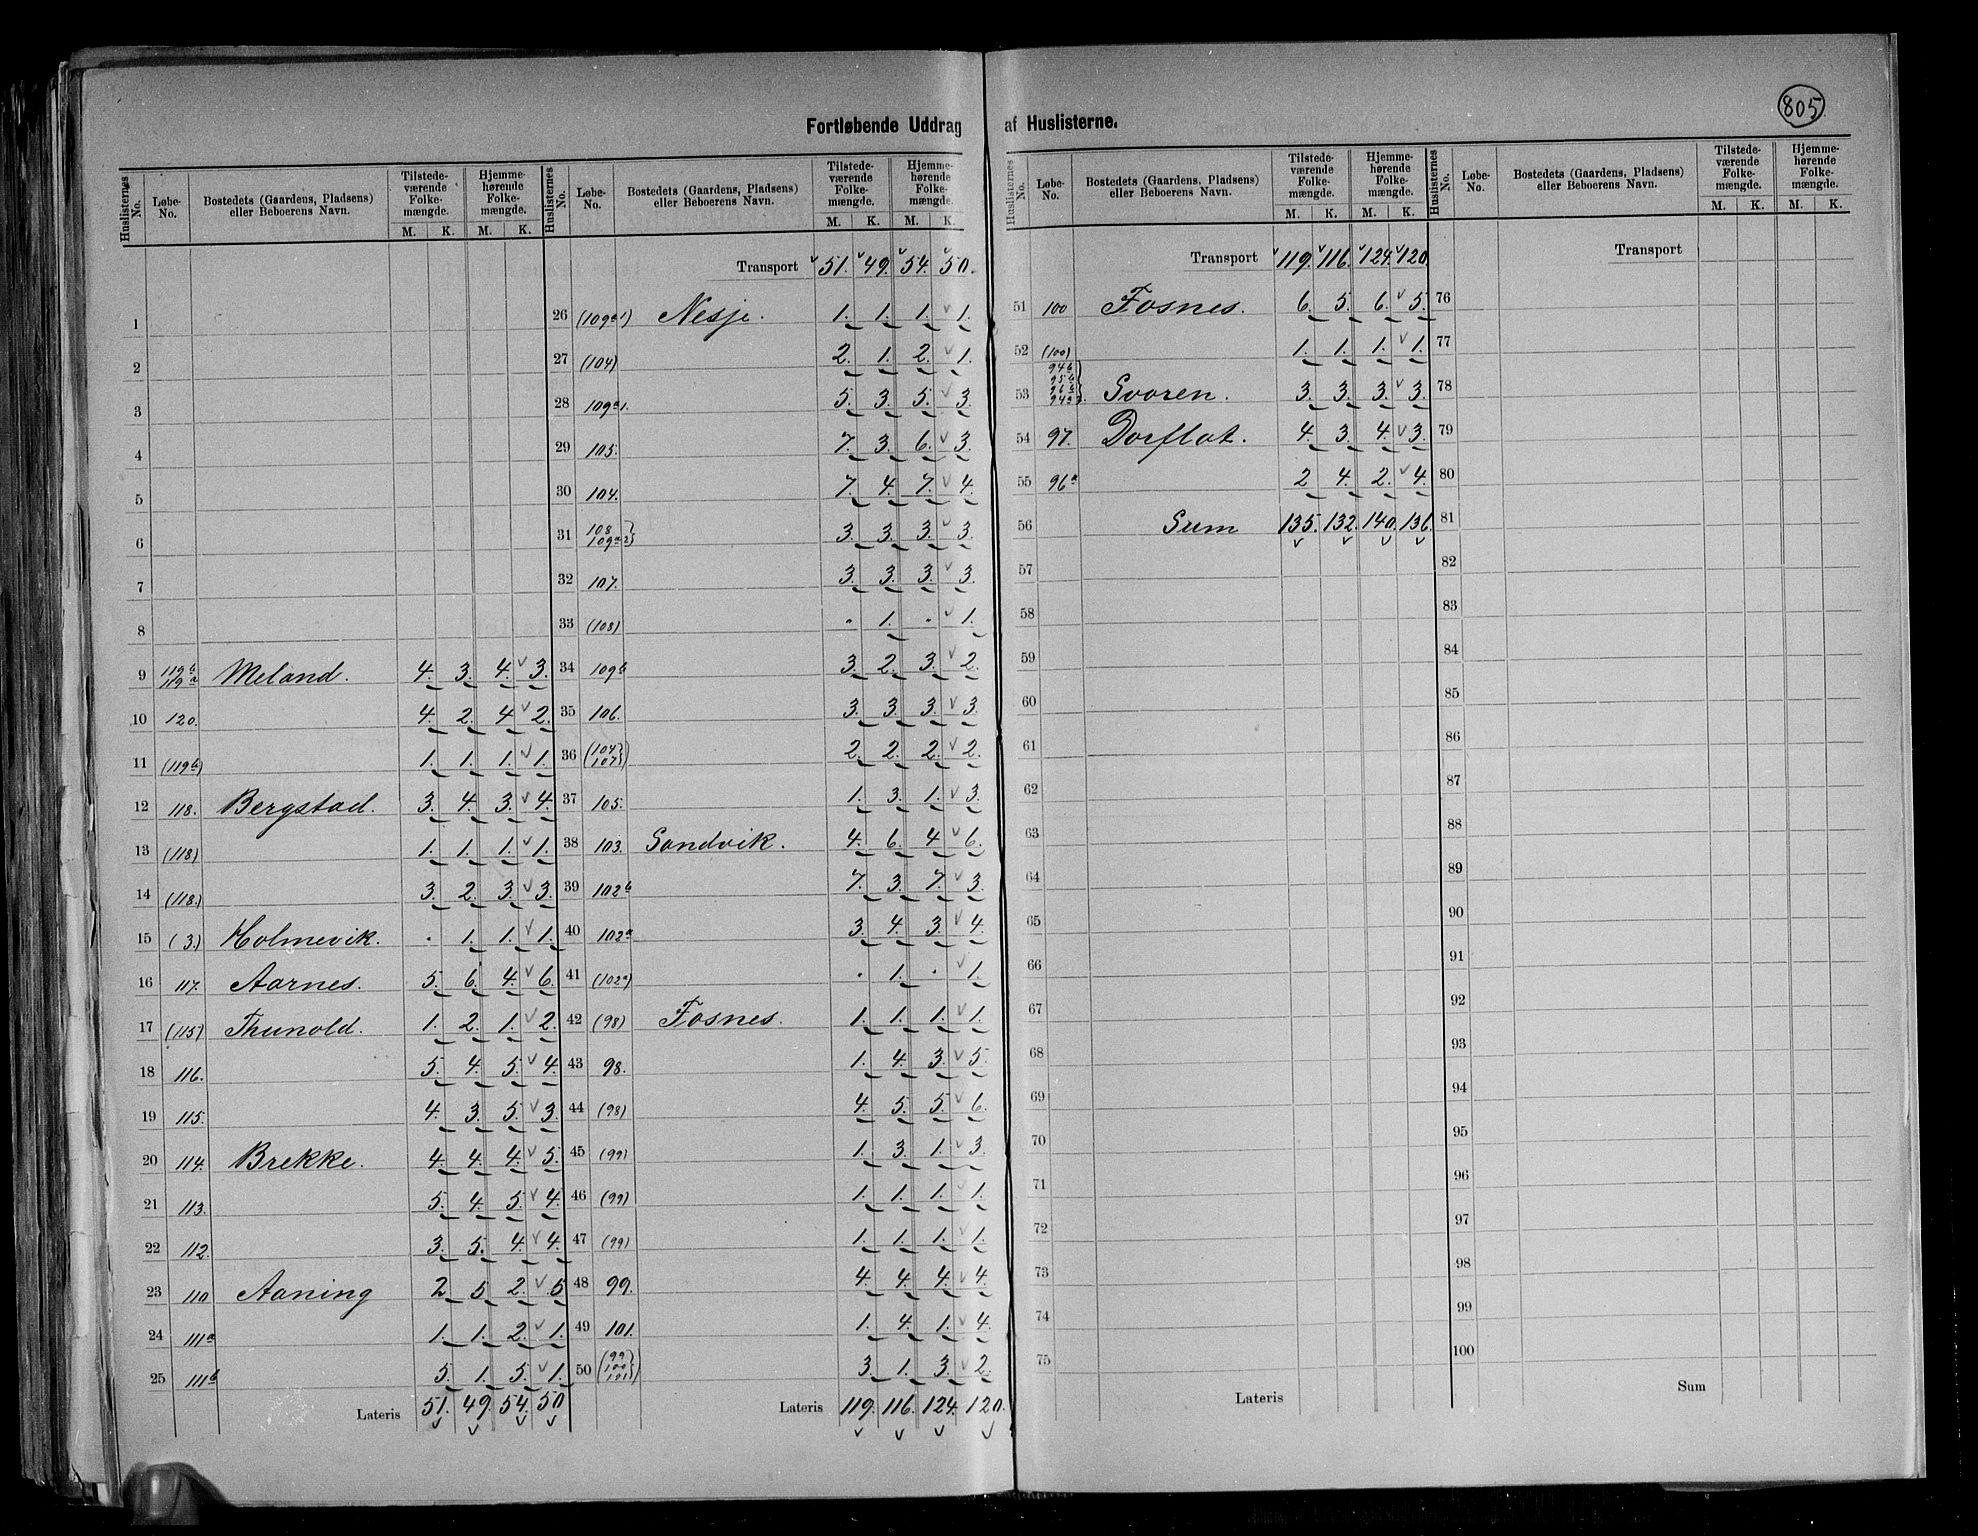 805
Fortløbende Uddrag af Huslisterne.
Huslisternes No. | Løbe-No. | Bostedets (Gaardens, Pladsens) eller Beboerens Navn. | Tilstedeværende Folkemængde. M. K. | Hjemmehørende Folkemængde. M. K.
1
2
3
4
5
6
7
8
9 119b 119a Meland. 4. 3. 4. 3.
10 120. 4. 2. 4. 2.
11 (119b) 1. 1. 1. 1.
12 118. Bergstad. 3. 4. 3. 4.
13 (118) 1. 1. 1. 1.
14 (118.) 3. 2. 3. 3.
15 (3.) Holmevik. . 1. 1. 1.
16 117. Aarnes. 5. 6. 4. 6.
17 (115) Thunold. 1. 2. 1. 2.
18 116. 5. 4. 5. 4.
19 115. 4. 3. 5. 3.
20 114. Brekke. 4. 4. 4. 5.
21 113. 5. 4. 5. 4.
22 112. 3. 5. 4. 4.
23 110 Aaning 2 5 2. 5
24 111a 1. 1. 2. 1.
25 111b 5. 1. 5. 1.
Lateris 51. 49 54. 50
Huslisternes No. | Løbe-No. | Bostedets (Gaardens, Pladsens) eller Beboerens Navn. | Tilstedeværende Folkemængde. M. K. | Hjemmehørende Folkemængde. M. K.
Transport 51. 49. 54. 50.
26 (109a1) Nesje. 1. 1. 1. 1.
27 (104) 2. 1. 2. 1.
28 109a1. 5. 3. 5. 3.
29 105. 7. 3. 6. 3.
30 104. 7. 4. 7. 4.
31 108 109a2} 3. 3. 3. 3.
32 107. 3. 3. 3. 3.
33 (108) . 1. . 1.
34 109b 3. 2. 3. 2.
35 106. 3. 3. 3. 3.
36 (104 107) 2. 2. 2. 2.
37 105. 1. 3. 1. 3.
38 103. Sandvik. 4. 6. 4. 6.
39 102b 7. 3. 7. 3.
40 102a 3. 4. 3. 4.
41 (102a) . 1. . 1.
42 (98) Fosnes. 1. 1. 1. 1.
43 98. 1. 4. 3. 5.
44 (98) 4. 5. 5. 6.
45 (99) 1. 3. 1. 3.
46 (99) 1. 1. 1. 1.
47 (99) 1. 1. 1. 1.
48 99. 4. 4. 4. 4.
49 101. 1. 4. 1. 4.
50 (99 100 101) 3 1. 3. 2.
Lateris 119. 116. 124. 120.
Huslisternes No. | Løbe-No. | Bostedets (Gaardens, Pladsens) eller Beboerens Navn. | Tilstedeværende Folkemængde. M. K. | Hjemmehørende Folkemængde. M. K.
Transport 119. 116. 124. 120
51 100 Fosnes. 6. 5. 6. 5.
52 (100) 1. 1. 1. 1.
53 94b 95b 96b 94a Svoren. 3. 3. 3. 3.
54 97. Dorflot. 4. 3. 4. 3.
55 96a 2 4. 2. 4.
56 Sum 135. 132. 140. 136.
57
58
59
60
61
62
63
64
65
66
67
68
69
70
71
72
73
74
75
Lateris
Huslisternes No. | Løbe-No. | Bostedets (Gaardens, Pladsens) eller Beboerens Navn. | Tilstedeværende Folkemængde. M. K. | Hjemmehørende Folkemængde. M. K.
Transport
76
77
78
79
80
81
82
83
84
85
86
87
88
89
90
91
92
93
94
95
96
97
98
99
100
Sum